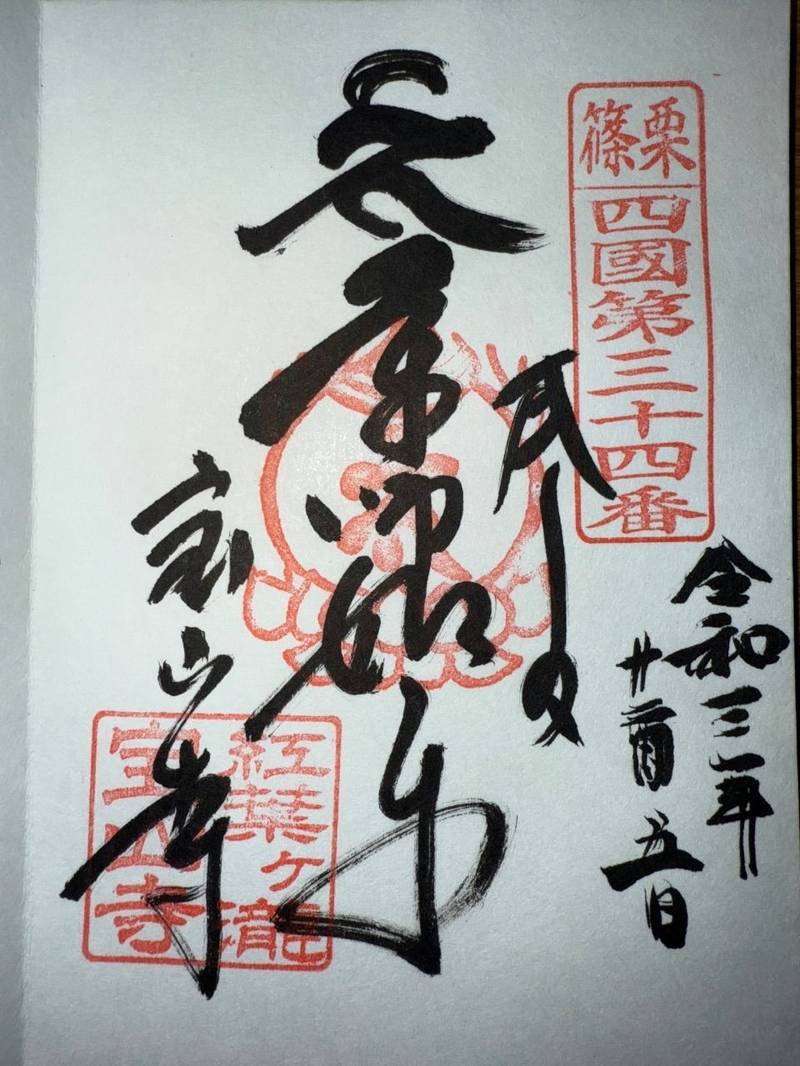 篠栗
四國第三十四番
令和三年
五日
師如来
宝山寺
紅葉ヶ瀧
宝山寺